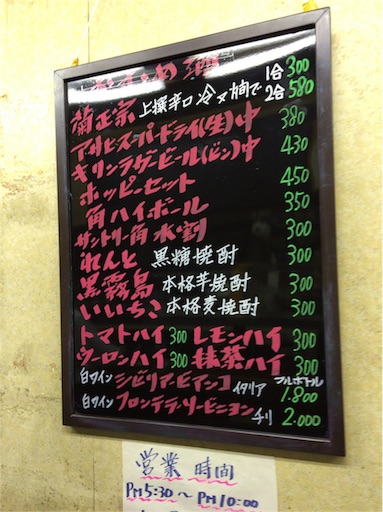 おすすめ酒
菊正宗 上撰辛口 冷又燗で 1合 300
2合 580
アサヒスーパードライ(生)中 380
キリンラガービール(ビン)中 430
ホッピーセット 450
角ハイボール 350
サントリー角水割 300
れんと 黒糖焼酎 300
黒霧島 本格芋焼酎 300
いいちこ 本格麦焼酎 300
トマトハイ 300 レモンハイ 300
ウーロンハイ 300 抹茶ハイ 300
白ワイン シビリア・ビアンコ イタリア フルボトル 1.800
白ワイン フロンテラ・ソービニヨン チリ 2.000
営業時間
PM5:30～PM10:00